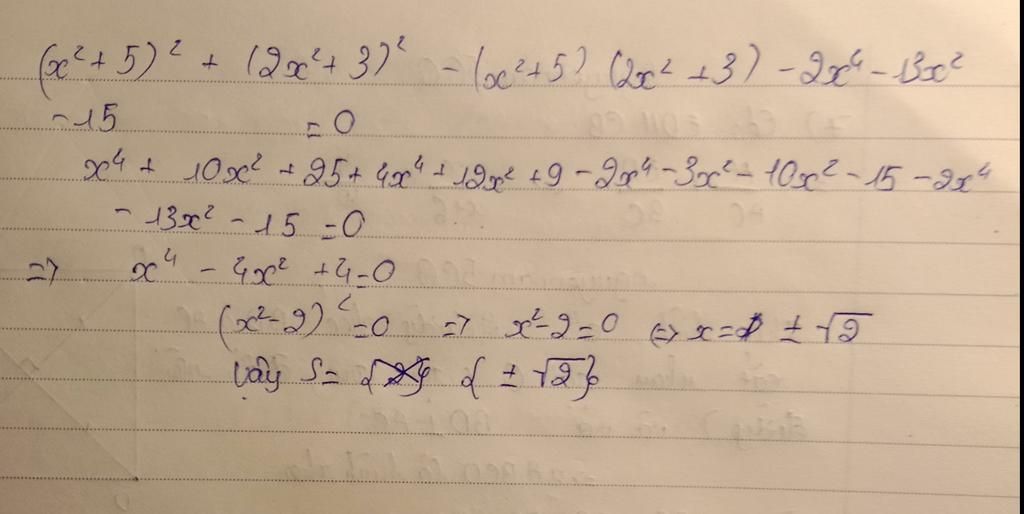 (x² + 5)² + (2x² + 3)² - (x² + 5) (2x² + 3) - 2x⁴ - 13x²
- 15 = 0
x⁴ + 10x² + 25 + 4x⁴ + 12x² + 9 - 2x⁴ - 3x² - 10x² - 15 - 2x⁴
- 13x² - 15 = 0
=> x⁴ - 4x² + 4 = 0
(x² - 2)² = 0 => x² - 2 = 0 <=> x = ± √2
Vậy S = { ± √2 }